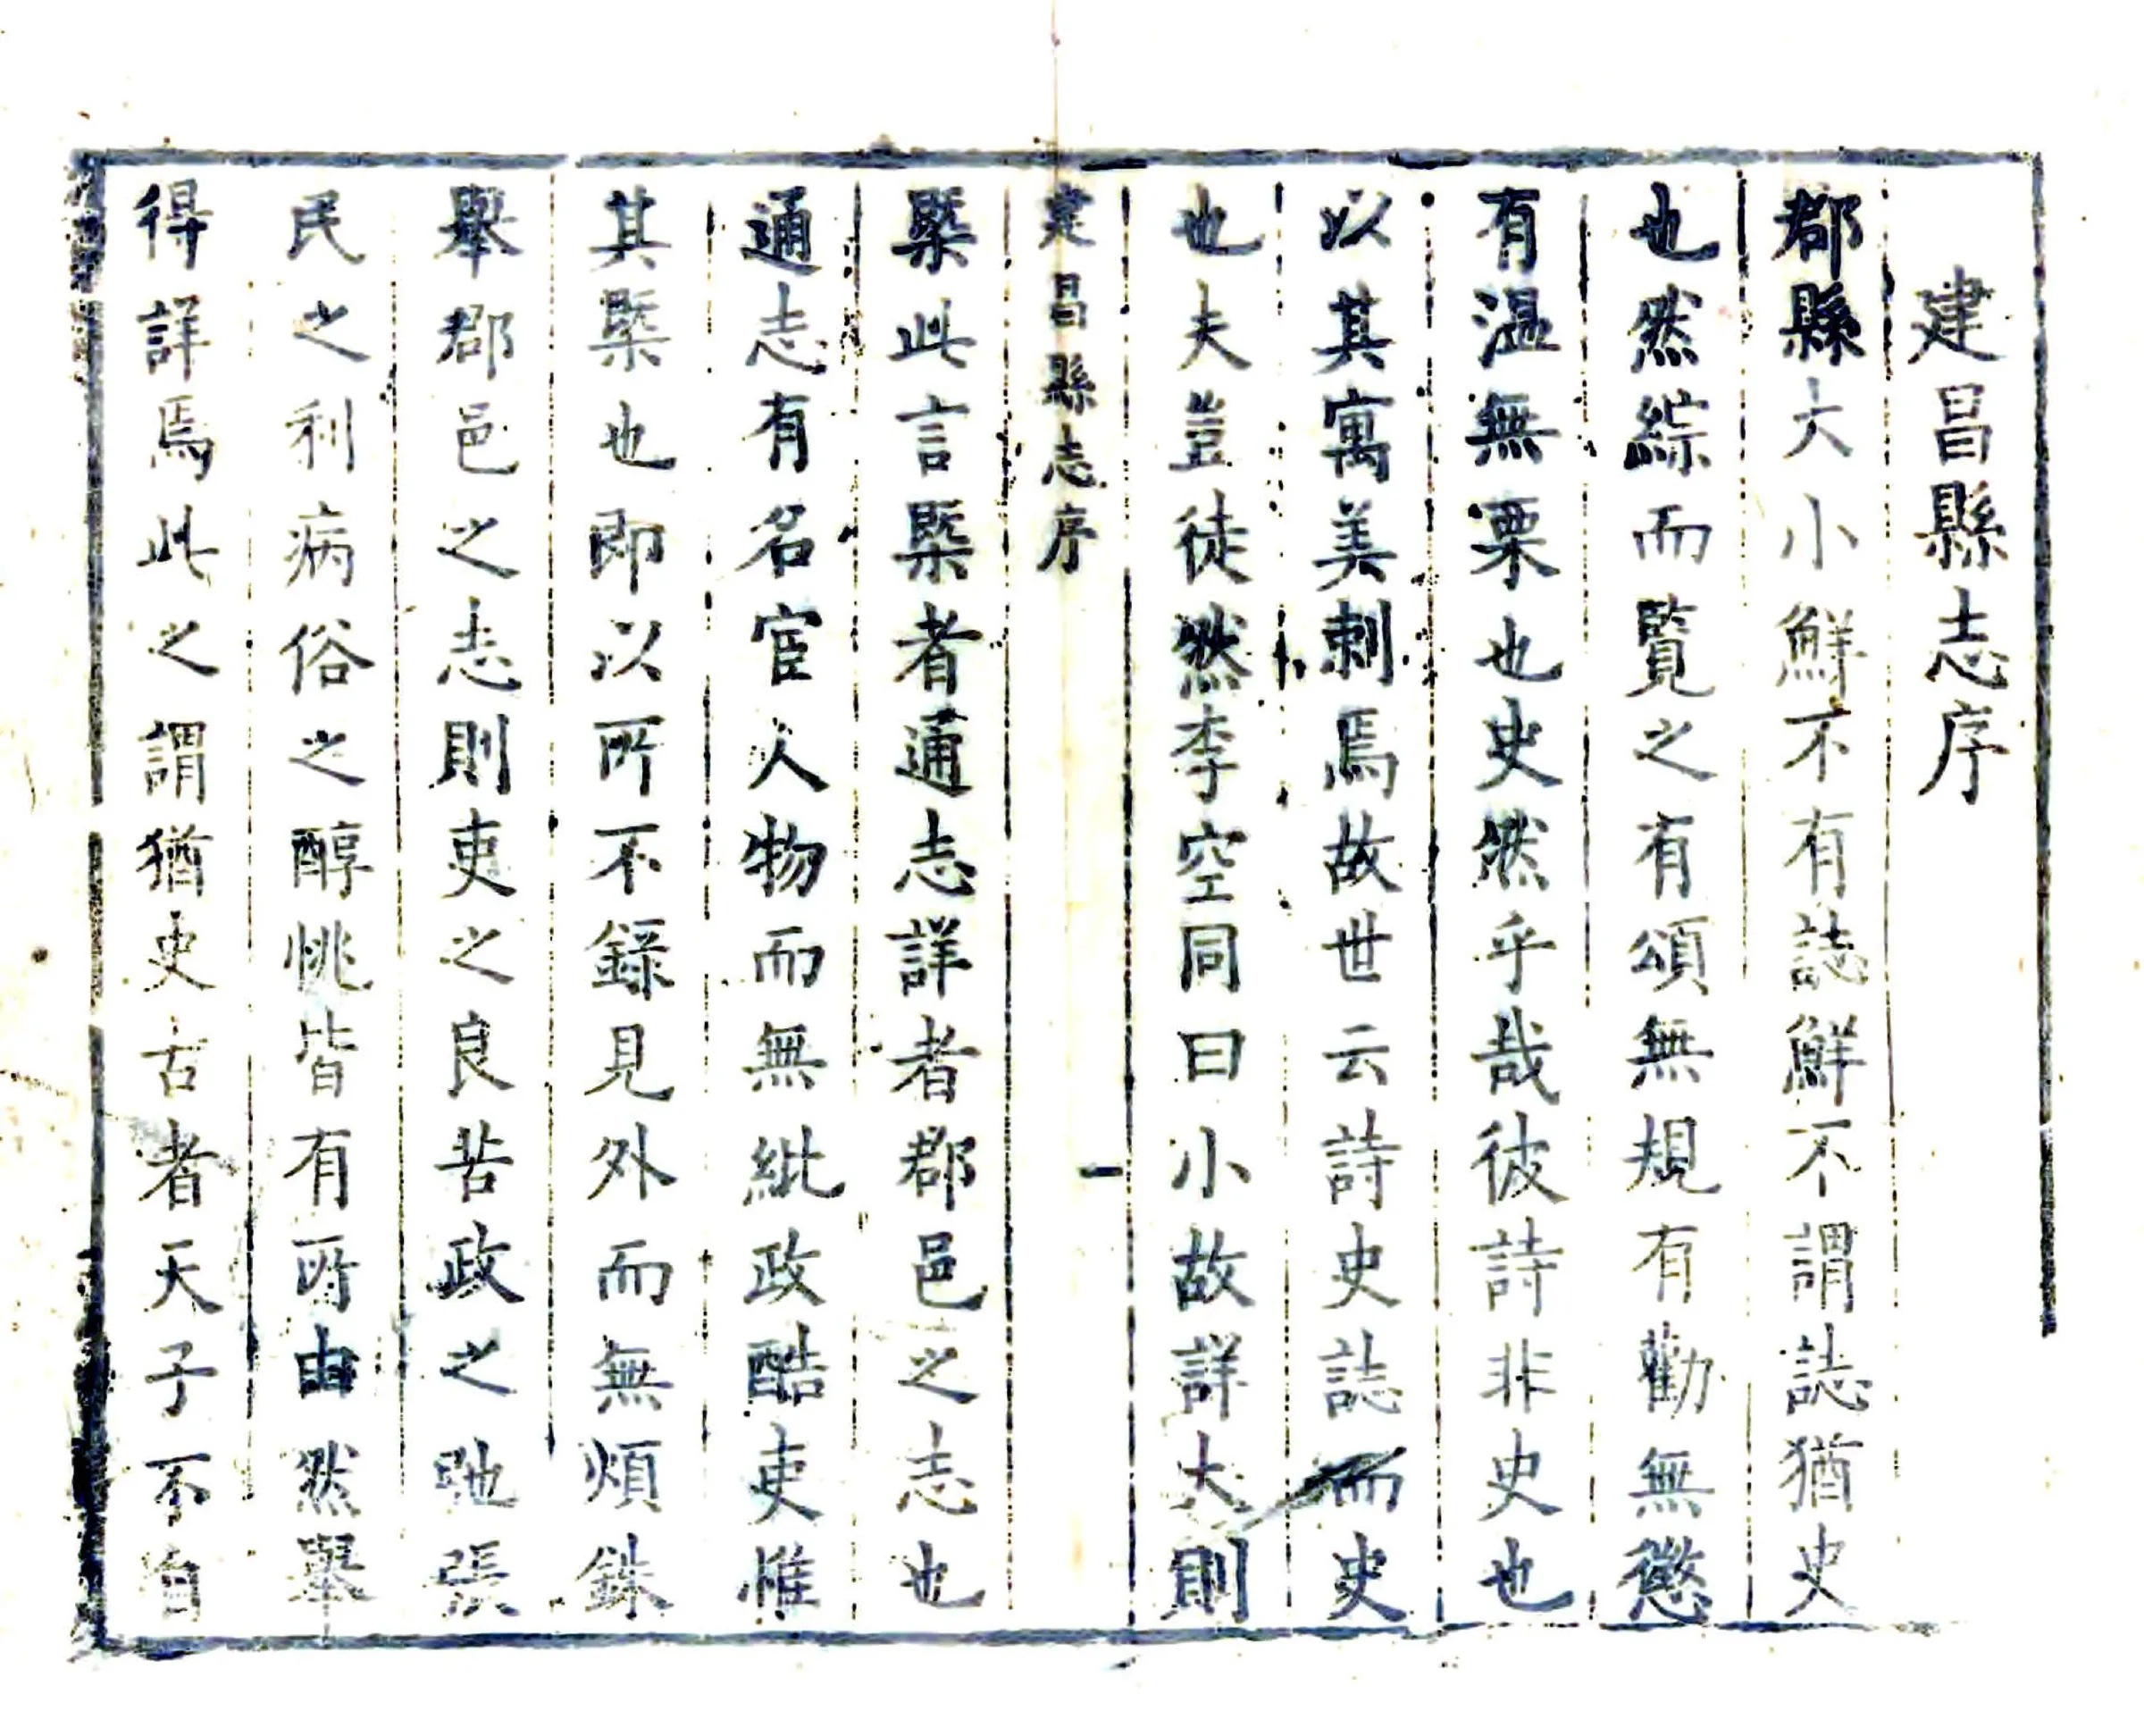 建昌縣志序
郡縣大小鮮不有誌鮮不謂誌猶史
也然綜而覽之有頌無規有勸無懲
有溫無栗也史然乎哉彼詩非史也
以其寓美刺焉故世云詩史誌而史
也夫豈徒然李空同曰小故詳大則
建昌縣志序
一
槩此言槩者通志詳者郡邑之志也
通志有名宦人物而無紕政酷吏惟
其槩也即以所不錄見外而無煩銖
舉郡邑之志則吏之良苦政之弛張
民之利病俗之醇恌皆有所由然舉
得詳焉此之謂猶史古者天子不自